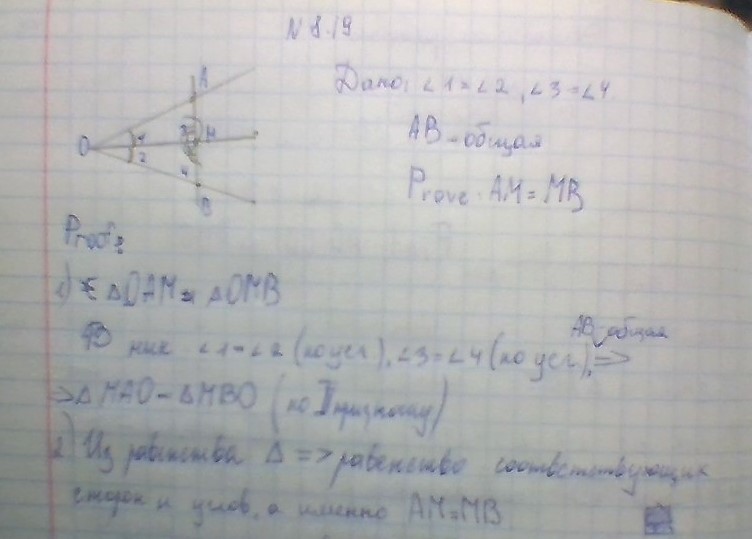 N 8.19
A
Дано: ∠1=∠2, ∠3=∠4
1
3
M
O
AB-общая
2
4
Prove: AM=MB
B
Proof:
1) ΔOAM и ΔOMB
AB-общая
В них ∠1=∠2 (по усл), ∠3=∠4 (по усл), =>
=> ΔMAO=ΔMBO (по II признаку)
2) Из равенства Δ => равенство соответствующих
сторон и углов, а именно AM=MB